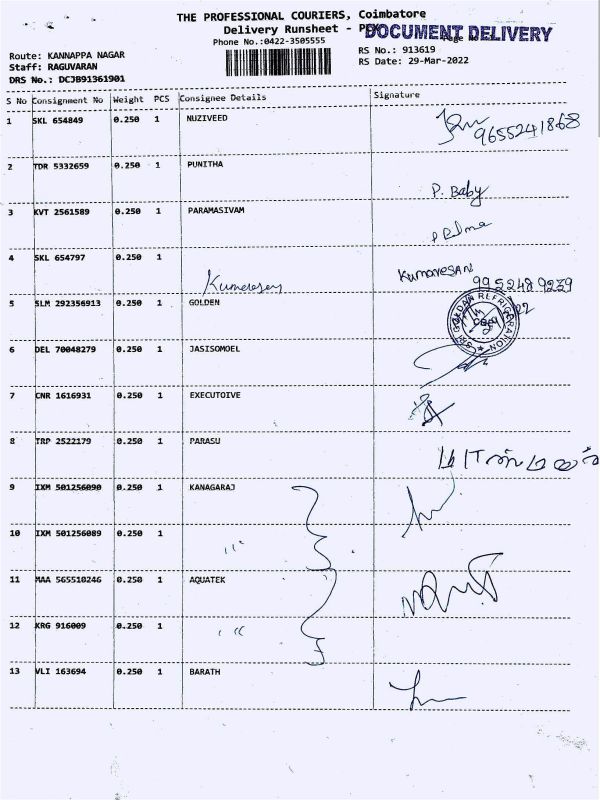 THE PROFESSIONAL COURIERS, Coimbatore
Delivery Runsheet -
DOCUMENT DELIVERY
Phone No.:0422-3505555
Route: KANNAPPA NAGAR
Staff: RAGUVARAN
DRS No.: DCJB91361901
RS No.: 913619
RS Date: 29-Mar-2022
S No Consignment No Weight PCS Consignee Details Signature
1 SKL 654849 0.250 1 NUZIVEED
9655241868
2 TDR 5332659 0.250 1 PUNITHA
P. Baby
3 KVT 2561589 0.250 1 PARAMASIVAM
4 SKL 654797 0.250 1
Kumaresan
KumaresAN
9952489239
5 SLM 292356913 0.250 1 GOLDEN
6 DEL 70048279 0.250 1 JASISOMOEL
7 CNR 1616931 0.250 1 EXECUTOIVE
8 TRP 2522179 0.250 1 PARASU
9 IXM 501256090 0.250 1 KANAGARAJ
10 IXM 501256089 0.250 1
11 MAA 565510246 0.250 1 AQUATEK
12 KRG 916009 0.250 1
13 VLI 163694 0.250 1 BARATH